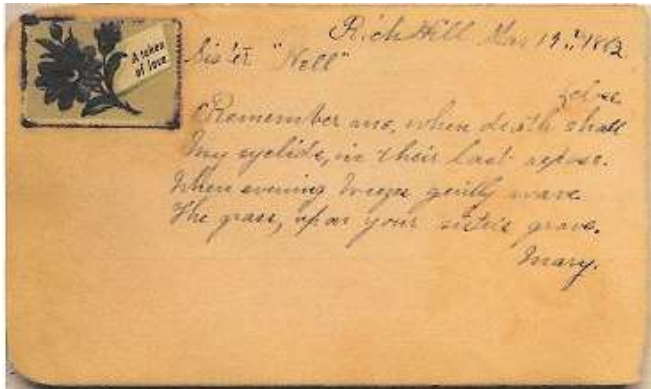 A token
of love
Rich Hill Mar 19th 1882
Sister "Nell"
close
Remember me, when death shall
My eyelids, in their last repose.
When evening breezes gently wave
The grass, upon your sister's grave.
Mary.